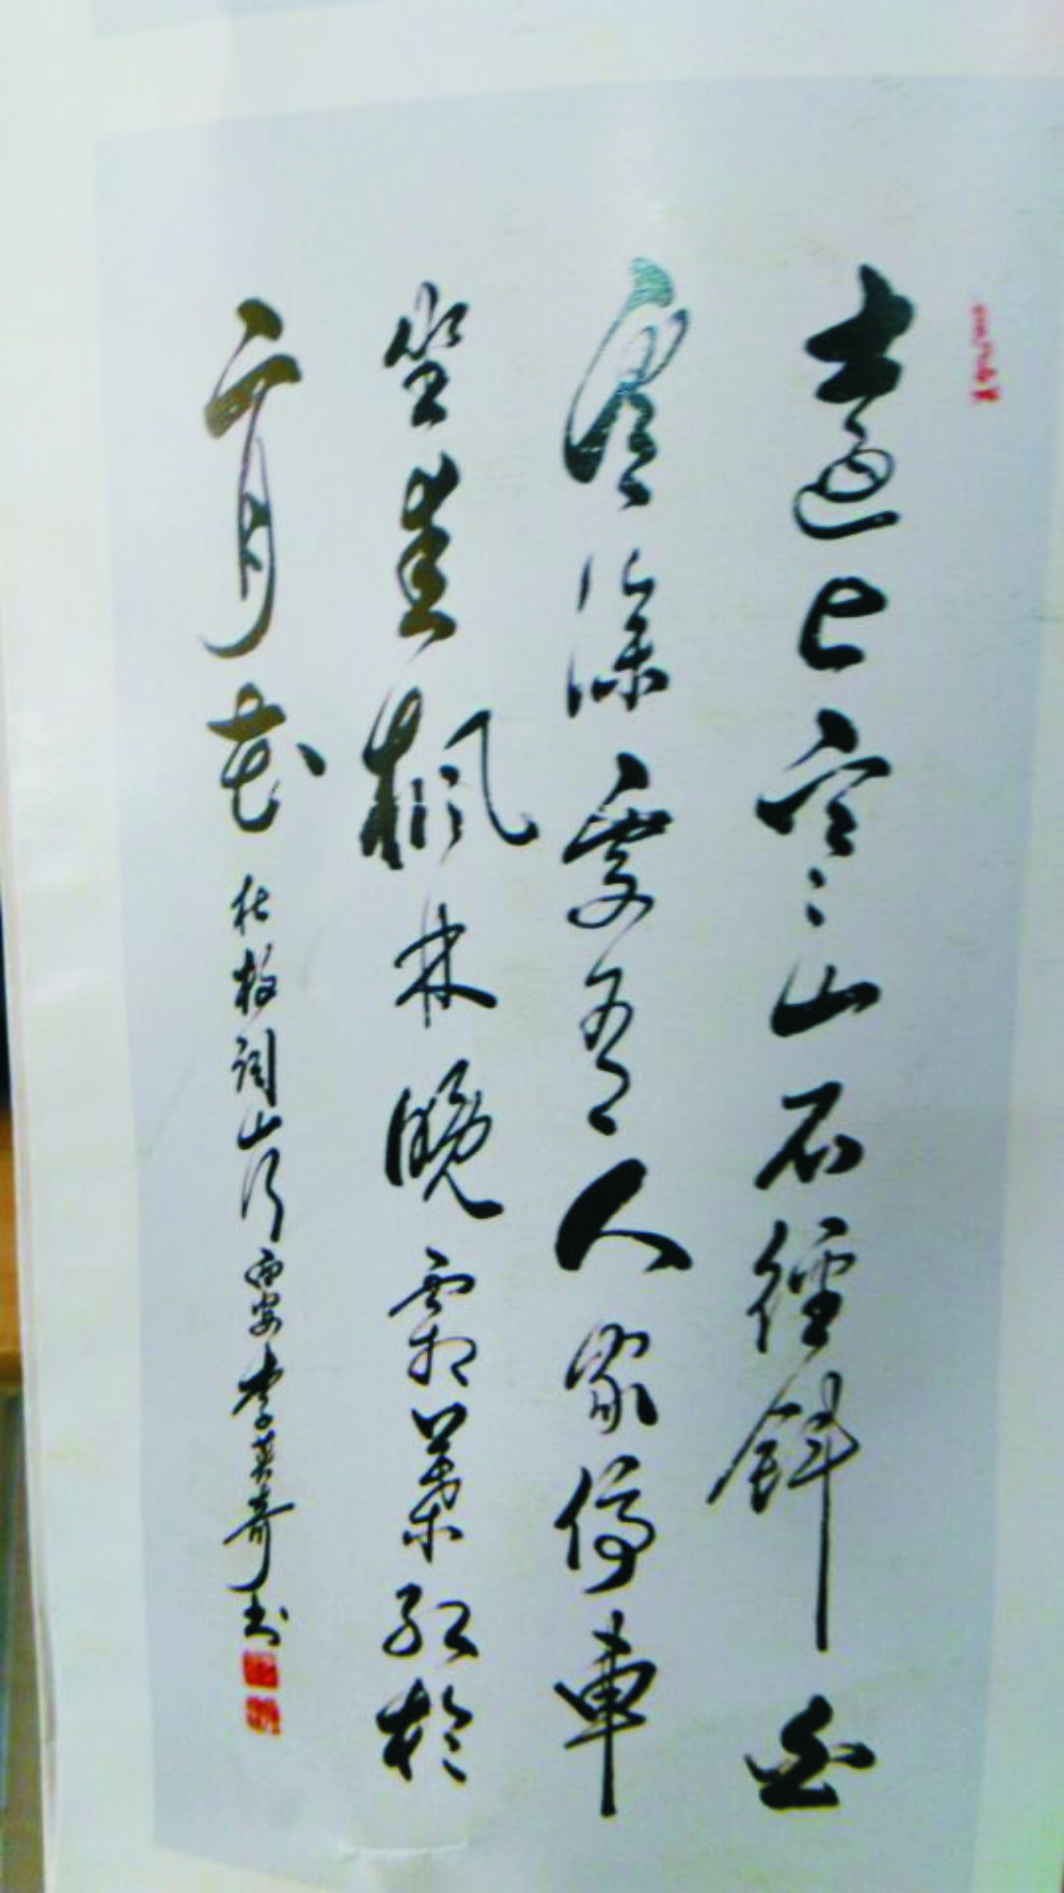 遠上寒山石徑斜白
雲深處有人家停車
坐愛楓林晚霜葉紅於
二月花 杜牧詞山行 西安李英奇书